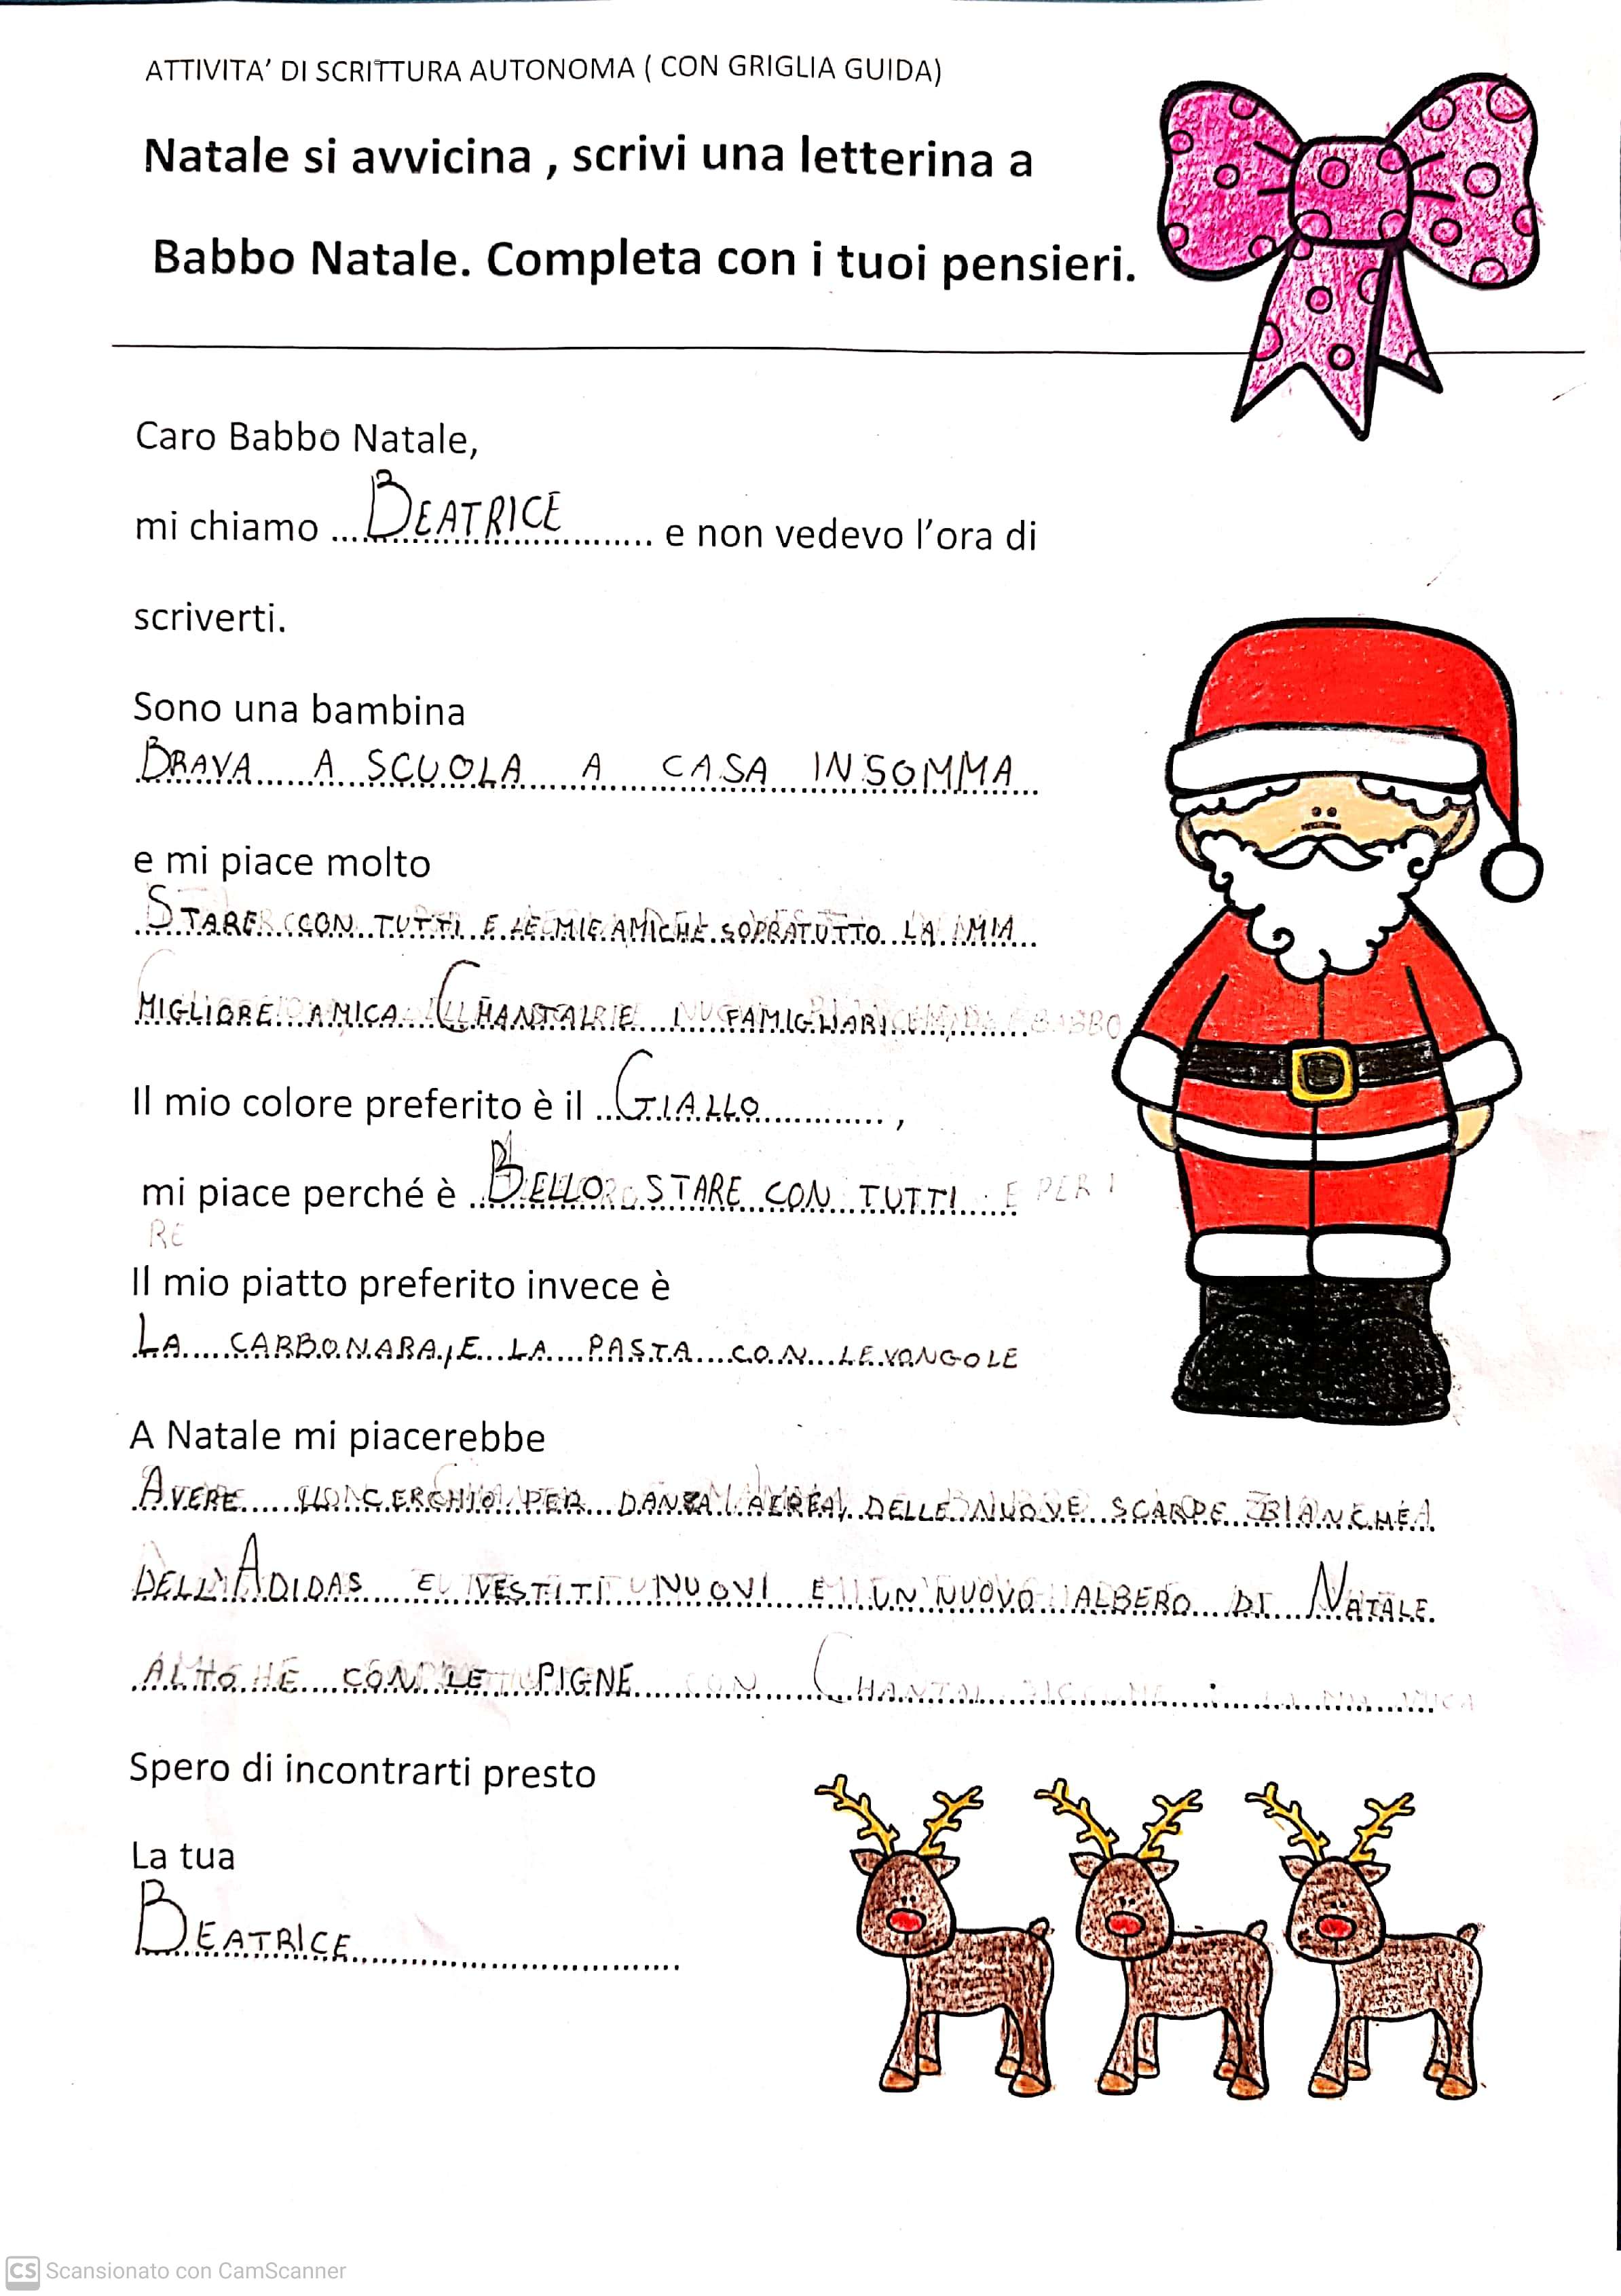 ATTIVITA' DI SCRITTURA AUTONOMA ( CON GRIGLIA GUIDA)
Natale si avvicina , scrivi una letterina a
Babbo Natale. Completa con i tuoi pensieri.
Caro Babbo Natale,
mi chiamo ...BEATRICE............ e non vedevo l'ora di
scriverti.
Sono una bambina
BRAVA A SCUOLA A CASA INSOMMA
e mi piace molto
STARE CON TUTTI E LE MIE AMICHE SOPRATUTTO LA MIA
MIGLIORE AMICA CHANTAL E I FAMIGLIARI
Il mio colore preferito è il ...GIALLO............ ,
mi piace perché è ...BELLO STARE CON TUTTI E PER
RE
Il mio piatto preferito invece è
LA CARBONARA, E LA PASTA CON LE VONGOLE
A Natale mi piacerebbe
AVERE CERCHIO PER DANZA AEREA, DELLE NUOVE SCARPE BIANCHE
DELL'ADIDAS E VESTITI NUOVI E UN NUOVO ALBERO DI NATALE
ALTO CON LE PIGNE CON CHANTAL
Spero di incontrarti presto
La tua
BEATRICE
CS Scansionato con CamScanner